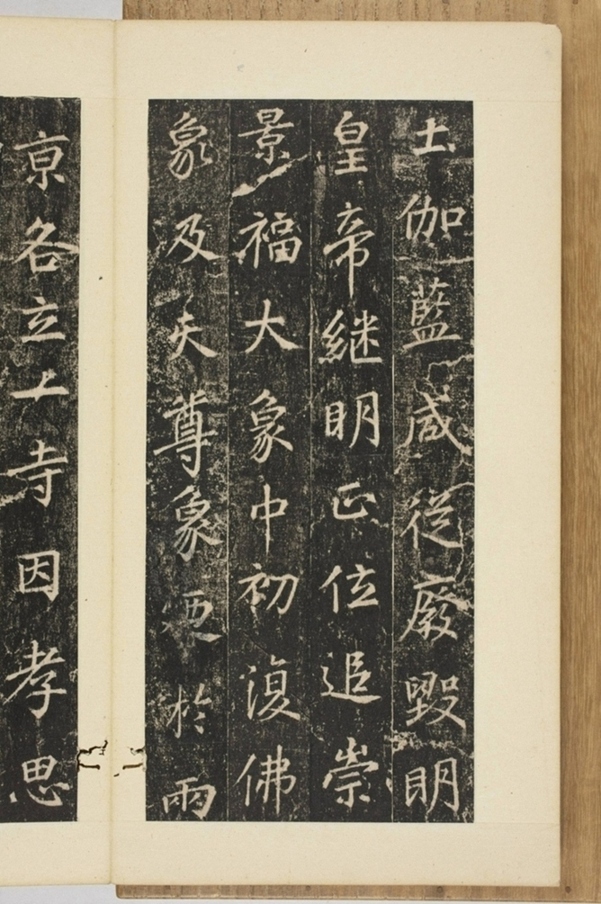 土伽藍咸從廢毀明
皇帝継明正位追崇
景福大象中初復佛
象及天尊象廼於兩
京各立一寺因孝思